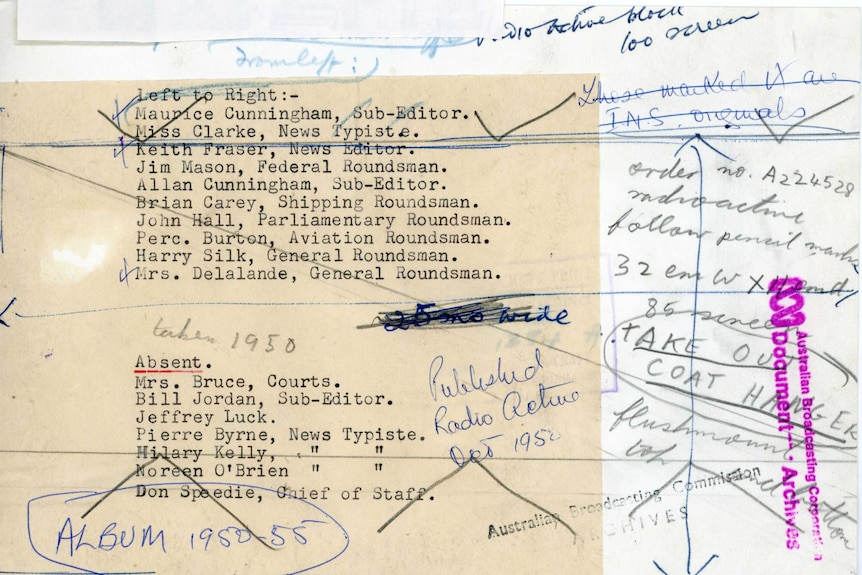 radio active block
100 screen
from left :)
Left to Right:-
Maurice Cunningham, Sub-Editor.
Miss Clarke, News Typiste.
Keith Fraser, News Editor.
Jim Mason, Federal Roundsman.
Allan Cunningham, Sub-Editor.
Brian Carey, Shipping Roundsman.
John Hall, Parliamentary Roundsman.
Perc. Burton, Aviation Roundsman.
Harry Silk, General Roundsman.
Mrs. Delalande, General Roundsman.
taken 1950
Absent.
Mrs. Bruce, Courts.
Bill Jordan, Sub-Editor.
Jeffrey Luck.
Pierre Byrne, News Typiste.
Hilary Kelly, " "
Noreen O'Brien " "
Don Speedie, Chief of Staff.
ALBUM 1950-55
wide
Published
Radio Active
Oct 1950
Those marked X are
INS. originals
order no. A224528
radioactive
follow pencil marks
32 em W X
85 screen
TAKE OUT
COAT HANGER
flushmount
top and bottom
Australian Broadcasting Commission
ARCHIVES
Australian Broadcasting Corporation
Document Archives